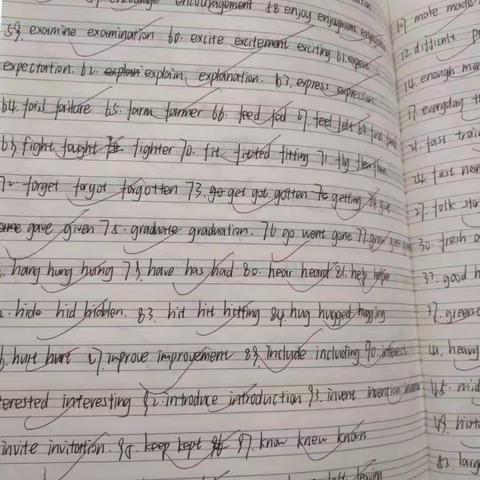 encouragement 58 enjoy enjoyment
59. examine examination 60. excite excitement exciting 61. expect
expectation. 62. explain explanation. 63. express expression
64. fail failure 65. farm farmer 66. feed fed 67. feel felt 68
fight fought fighter 70. fit fitted fitting 71. fly
72. forget forgot forgotten 73. get got gotten getting 74. give
gave given 75. graduate graduation. 76 go went gone 77. grow
hang hung hung 79. have has had 80. hear heard 81. help helper
hide hid hidden. 83. hit hit hitting 84. hug hugged hugging
hurt hurt 87. improve improvement 89. include including 90. interest
interested interesting 92. introduce introduction 93. invent invention
invite invitation. 95. keep kept 97. know knew known
leaving
11. make made
12. difficult
14. enough
17. everyday
21. fast train
27. folk
30. fresh
33. good
37. green
41. heavy
45. mid
49.
53. large